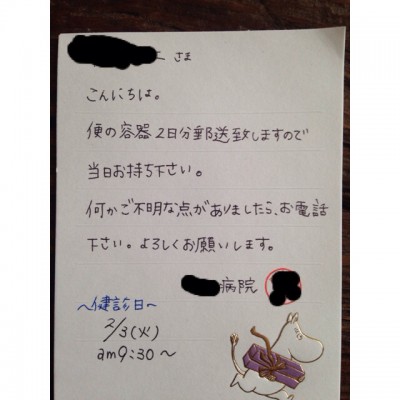 さま
こんにちは。
便の容器2日分郵送致しますので
当日お持ち下さい。
何かご不明な点がありましたら、お電話
下さい。よろしくお願いします。
病院
～健診日～
2/3(火)
am9:30～